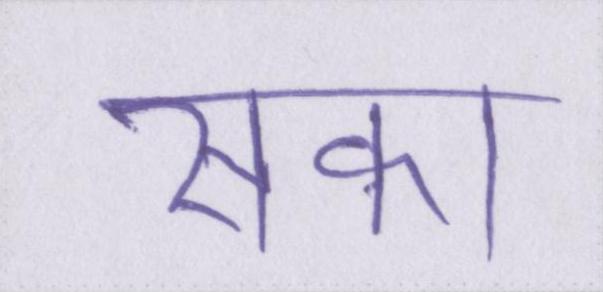 सका